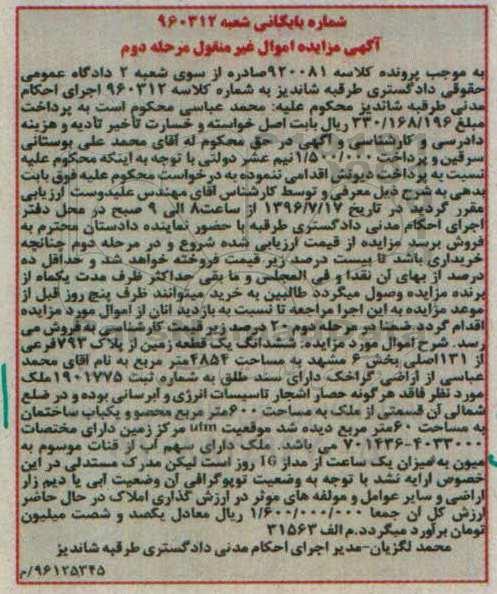 شماره بایگانی شعبه ۹۶۰۳۱۲
آگهی مزایده اموال غیر منقول مرحله دوم
به موجب پرونده کلاسه ۹۲۰۰۸۱صادره از سوی شعبه ۲ دادگاه عمومی
حقوقی دادگستری طرقبه شاندیز به شماره کلاسه ۹۶۰۳۱۲ اجرای احکام
مدنی طرقبه شاندیز محکوم علیه: محمد عباسی محکوم است به پرداخت
مبلغ ۳۳۰/۱۶۸/۱۹۶ ریال بابت اصل خواسته و خسارت تأخیر تأدیه و هزینه
دادرسی و کارشناسی و آگهی در حق محکوم له آقای محمد علی بوستانی
سرقین و پرداخت ۱/۵۰۰/۰۰۰نیم عشر دولتی با توجه به اینکه محکوم علیه
نسبت به پرداخت دیونش اقدامی ننموده به درخواست محکوم علیه فوق بابت
بدهی به شرح ذیل معرفی و توسط کارشناس آقای مهندس علیدوست ارزیابی
مقرر گردید در تاریخ ۱۳۹۶/۷/۱۷ از ساعت۸ الی ۹ صبح در محل دفتر
اجرای احکام مدنی دادگستری طرقبه با حضور نماینده دادستان محترم به
فروش برسد مزایده از قیمت ارزیابی شده شروع و در مرحله دوم چنانچه
خریداری باشد تا بیست درصد زیر قیمت فروخته خواهد شد و حداقل ده
درصد از بهای آن نقدا و فی المجلس و ما بقی حداکثر ظرف مدت یکماه از
برنده مزایده وصول میگردد طالبین به خرید میتوانند ظرف پنج روز قبل از
موعد مزایده به این اجرا مراجعه تا نسبت به بازدید آنان از اموال مورد مزایده
اقدام گردد ضمنا در مرحله دوم ۲۰ درصد زیر قیمت کارشناسی به فروش می
رسد. شرح اموال مورد مزایده: ششدانگ یک قطعه زمین از پلاک ۷۹۳فرعی
از ۱۳۱اصلی بخش ۶ مشهد به مساحت ۴۸۵۴متر مربع به نام آقای محمد
عباسی از اراضی گراخک دارای سند طلق به شماره ثبت ۱۹۰۱۷۷۵ملک
مورد نظر فاقد هرگونه حصار اشجار تاسیسات انرژی و آبرسانی بوده و در ضلع
شمالی آن قسمتی از ملک به مساحت ۶۰۰متر مربع محصو و یکباب ساختمان
به مساحت ۶۰متر مربع دیده شد موقعیت utm مرکز زمین دارای مختصات
۷۰۱۴۳۶-۴۰۳۳۰۰۰ می باشد. ملک دارای سهم آب از قنات موسوم به
میون به میزان یک ساعت از مدار 16 روز است لیکن مدرک مستدلی در این
خصوص ارایه نشد با توجه به وضعیت توپوگرافی آن وضعیت آبی یا دیم زار
اراضی و سایر عوامل و مولفه های موثر در ارزش گذاری املاک در حال حاضر
ارزش کل آن جمعا ۱/۶۰۰/۰۰۰/۰۰۰ ریال معادل یکصد و شصت میلیون
تومان برآورد میگردد.م الف ۳۱۵۶۳
محمد لگزیان-مدیر اجرای احکام مدنی دادگستری طرقبه شاندیز
۹۶۱۲۵۳۴۵/م